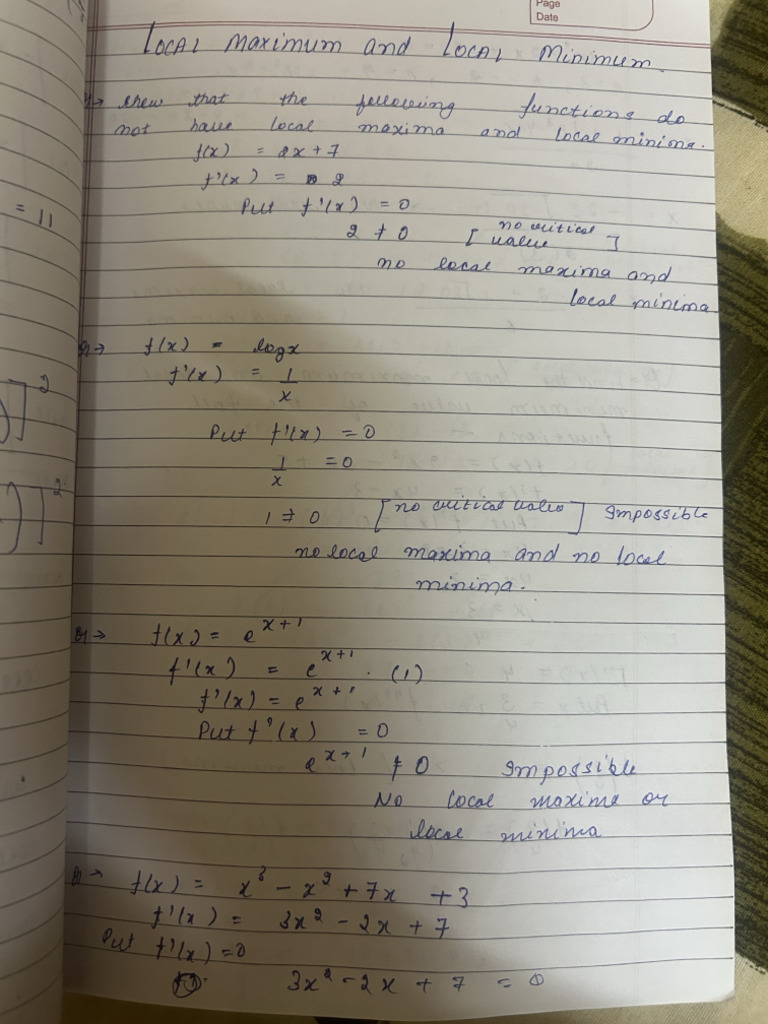 Page
Date
LOCAL Maximum and LOCAL Minimum.
Q→ shew that the following functions do
not have local maxima and local minima.
f(x) = 2x + 7
f'(x) = 2
Put f'(x) = 0
2 ≠ 0 [no critical value]
no local maxima and
local minima
= 11
Q→ f(x) = logx
f'(x) = 1/x
Put f'(x) = 0
1/x = 0
1 ≠ 0 [no critical value] Impossible
no local maxima and no local
minima.
]²
)]²
Q→ f(x) = e^(x+1)
f'(x) = e^(x+1) . (1)
f'(x) = e^(x+1)
Put f'(x) = 0
e^(x+1) ≠ 0 Impossible
No local maxima or
local minima
Q→ f(x) = x³ - x² + 7x + 3
f'(x) = 3x² - 2x + 7
Put f'(x) = 0
3x² - 2x + 7 = 0